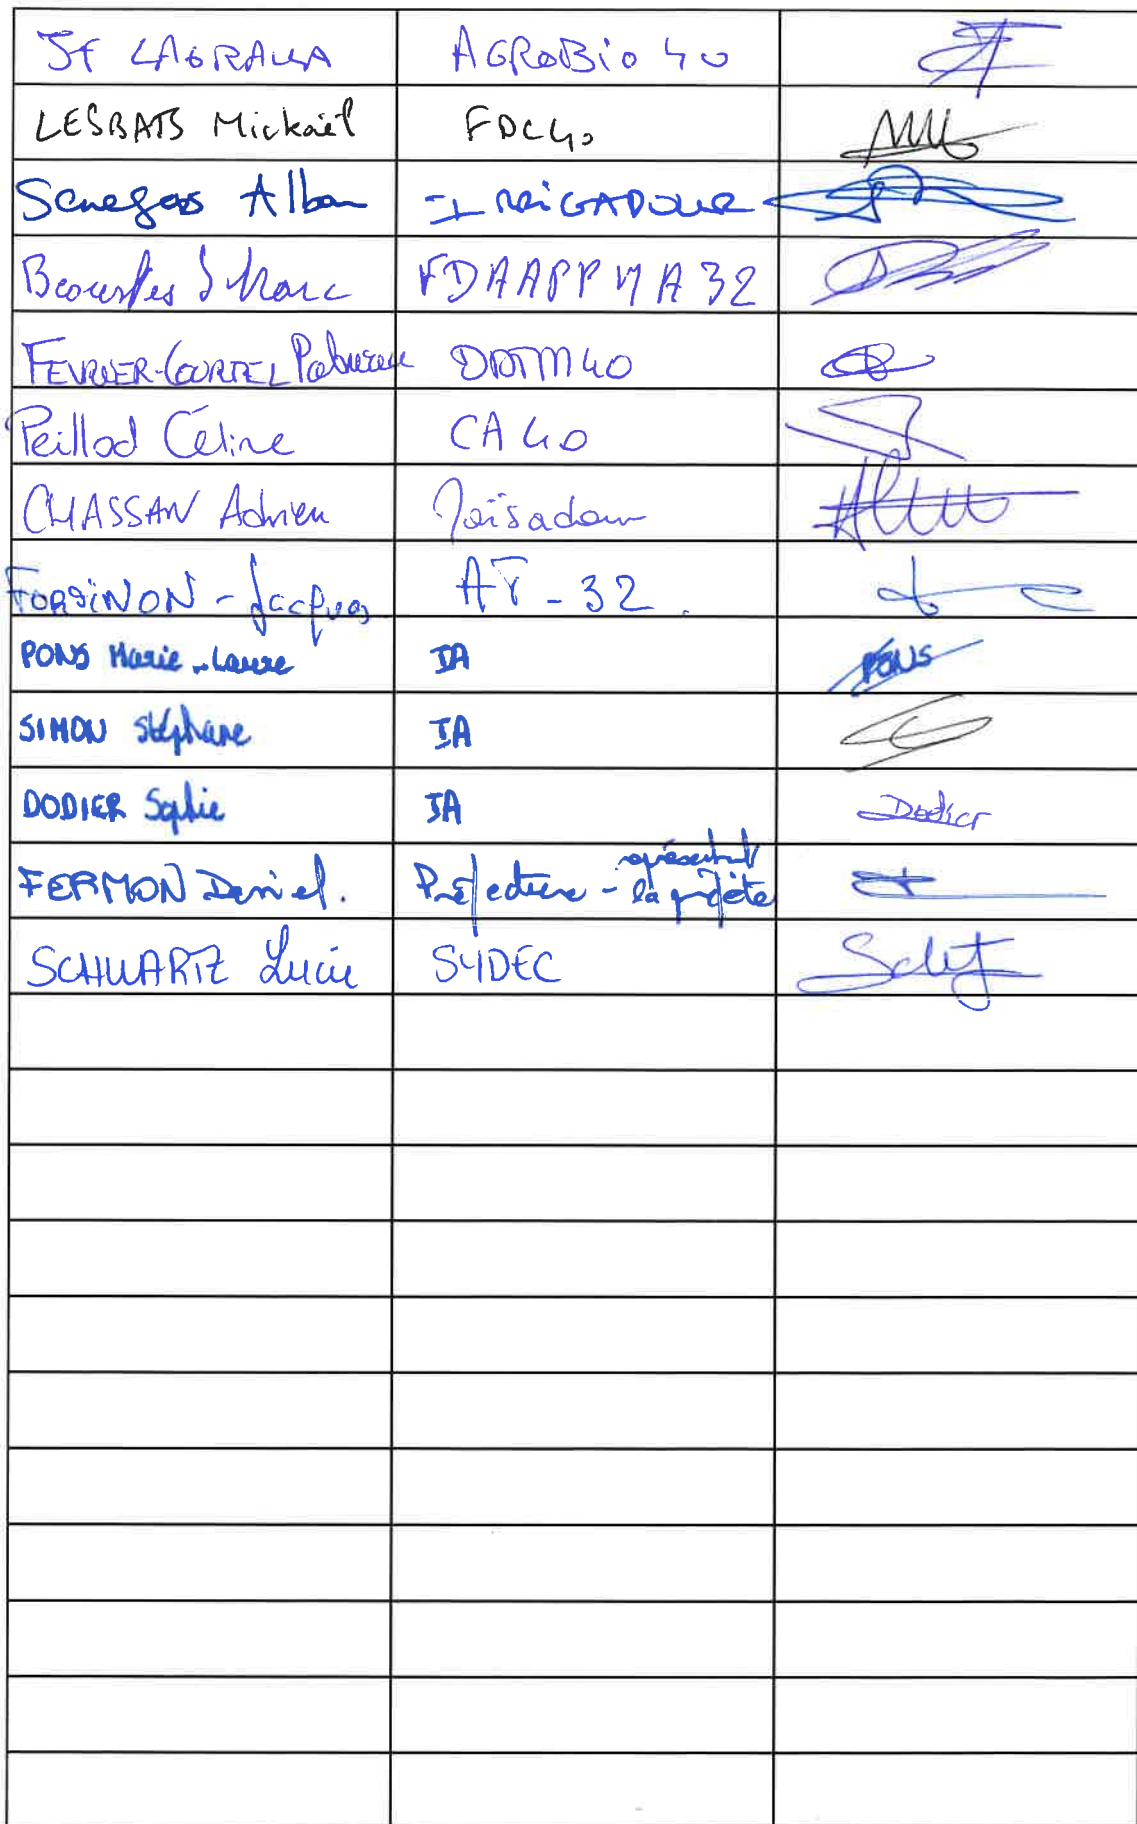 JF LAGRAULA AGROBIO 40
LESBATS Mickaël FDC40
Senegas Alban IRRIGADOUR
J Marc FDAAPPMA32
FEVRIER-COURTEL DDTM40
Peillod Céline CA 40
CHASSAN Adrien
FORSINON - Jacques AT - 32.
PONS Marie-Laure IA PONS
SIMON Stéphane IA
DODIER Sophie IA Dodier
FERMON Daniel. Préfecture - représentant
la préfète
SCHWARTZ Lucie SYDEC